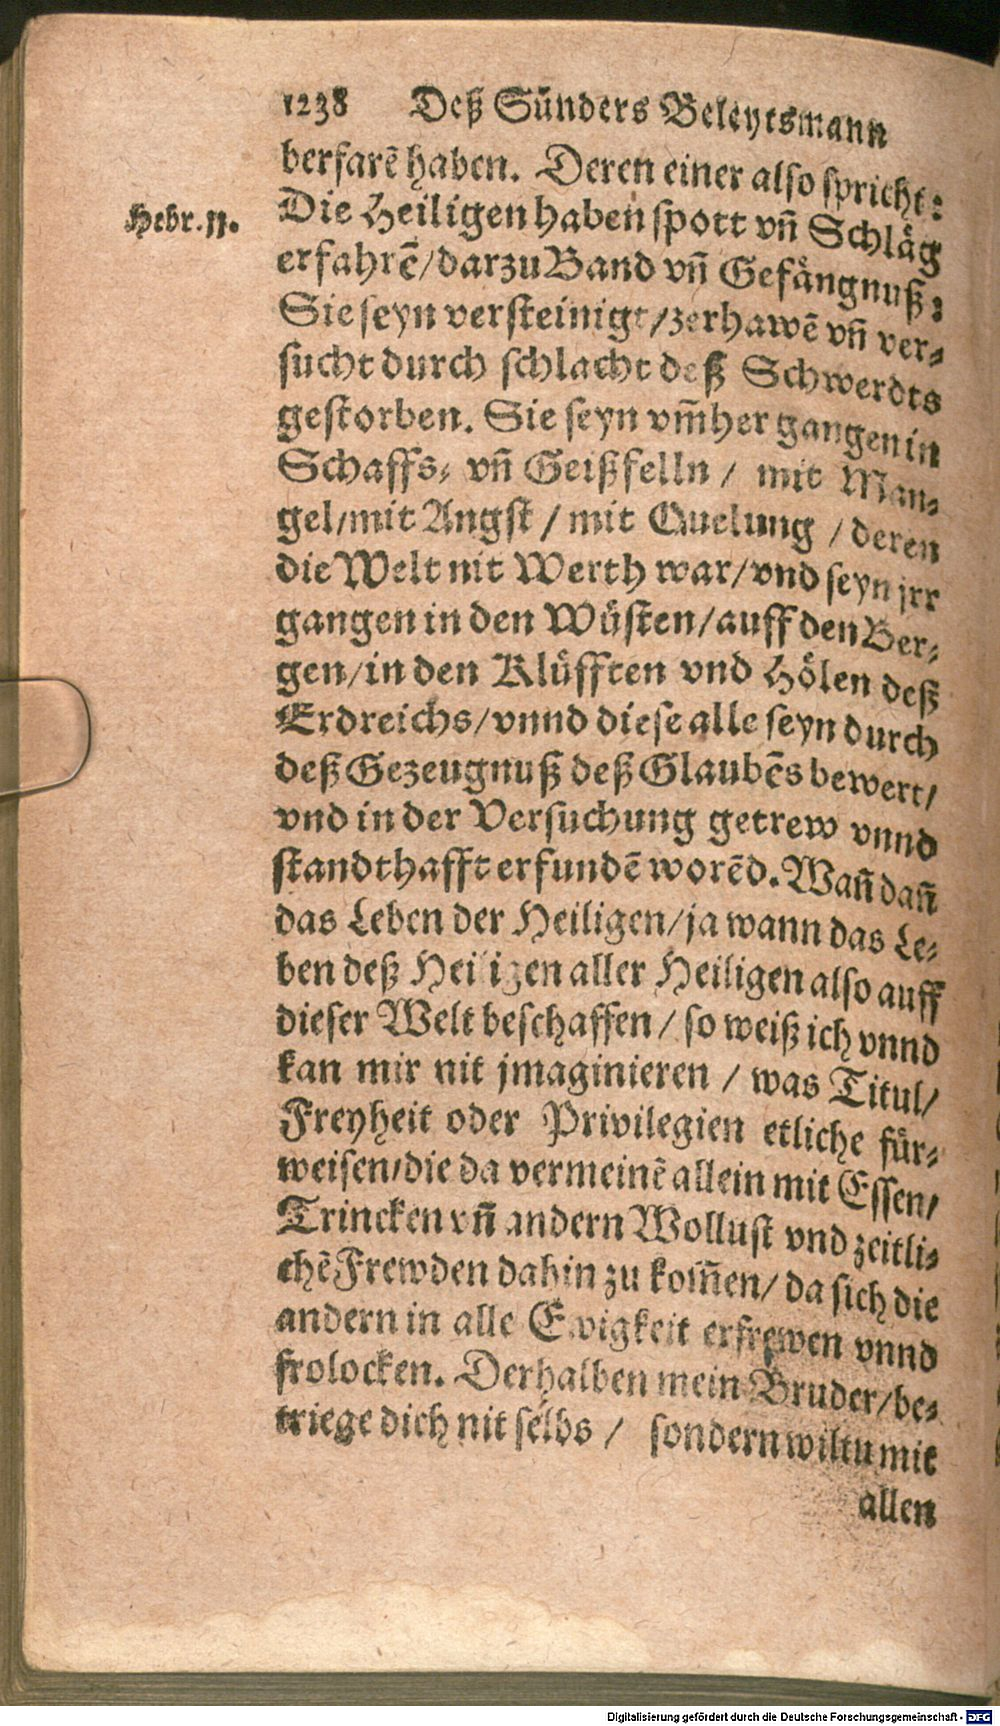 1238 Deß Sünders Beleytsmann
berfarē haben. Deren einer also spricht:
Hebr. 11.
Die Heiligen haben spott vñ Schläg
erfahrē/darzu Band vñ Gefängnuß:
Sie seyn versteinigt/zerhawē vñ ver-
sucht durch schlacht deß Schwerdts
gestorben. Sie seyn vm̄her gangen in
Schaffs- vñ Geißfelln / mit Man-
gel/mit Angst / mit Quelung / deren
die Welt nit Werth war/vnd seyn jrr
gangen in den Wüsten/auff den Ber-
gen/in den Klüfften vnd Hölen deß
Erdreichs/vnnd diese alle seyn durch
deß Gezeugnuß deß Glaubēs bewert/
vnd in der Versuchung getrew vnnd
standthafft erfundē worēd. Wañ dañ
das Leben der Heiligen/ja wann das Le-
ben deß Heiligen aller Heiligen also auff
dieser Welt beschaffen / so weiß ich vnnd
kan mir nit jmaginieren / was Titul/
Freyheit oder Privilegien etliche für-
weisen/die da vermeinē allein mit Essen/
Trincken vñ andern Wollust vnd zeitli-
chē Frewden dahin zu kom̄en/ da sich die
andern in alle Ewigkeit erfrewen vnnd
frolocken. Derhalben mein Bruder/be-
triege dich nit selbs / sondern wiltu mit
allen
Digitalisierung gefördert durch die Deutsche Forschungsgemeinschaft - DFG